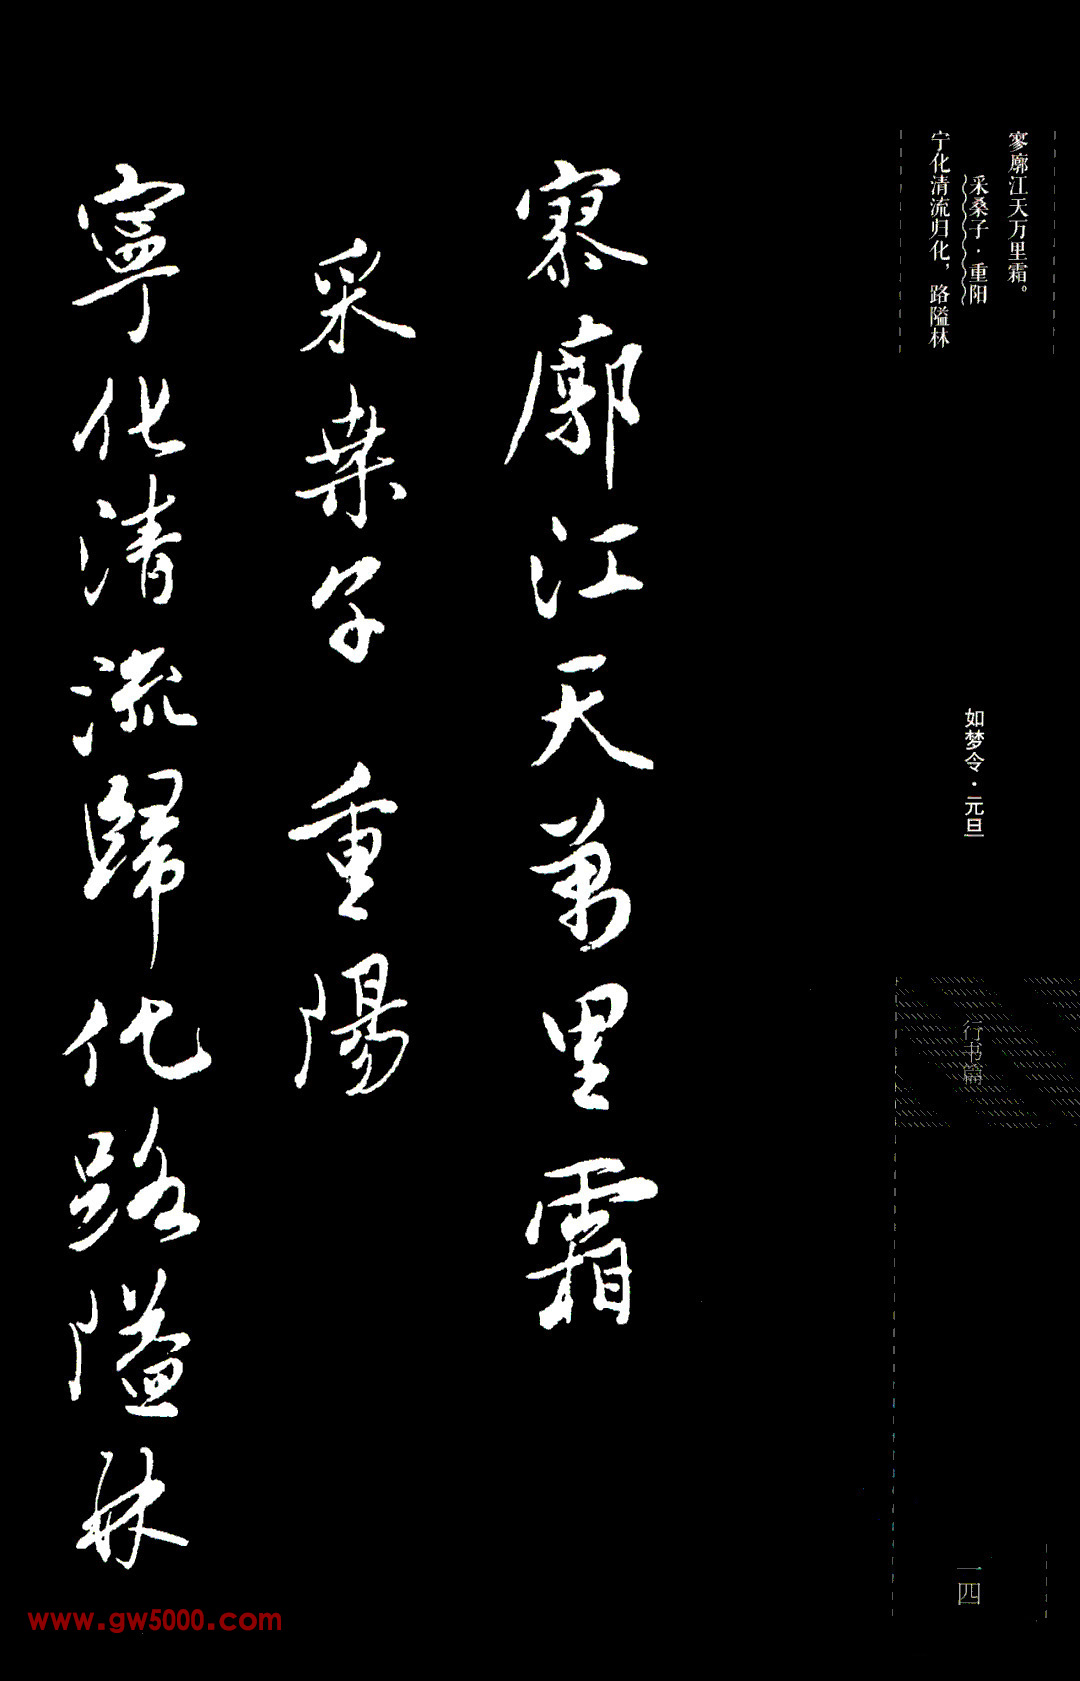 寥廓江天万里霜。
采桑子·重阳
宁化清流归化，路隘林
如梦令·元旦
行书篇
一四
寥廓江天萬里霜
采桑子 重陽
寧化清流歸化路隘林
www.gw5000.com